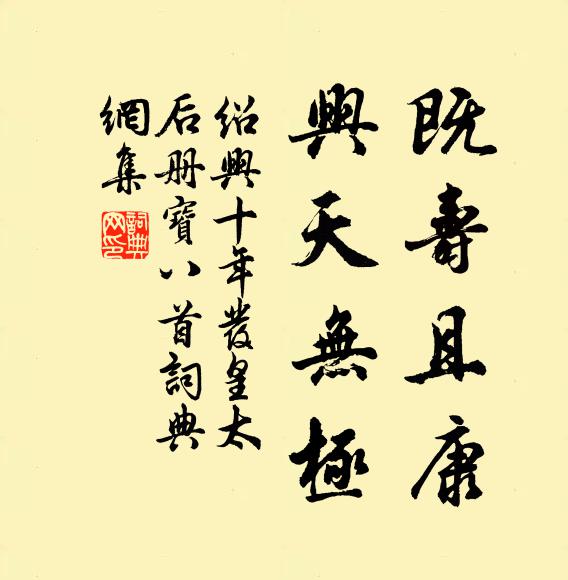 既壽且康
興天無極
紹興十年發皇太
后册寶八首詞典
網集
詞典網印